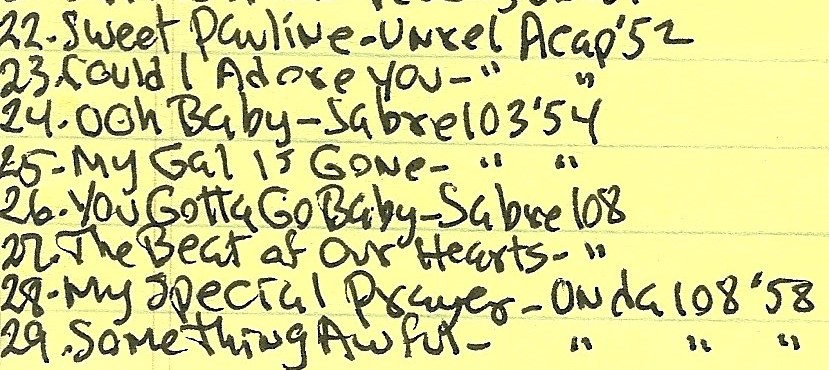 22. Sweet Pauline - Unrel Acap '52
23. Could I Adore You - " "
24. Ooh Baby - Sabre 103 '54
25 - My Gal Is Gone - " "
26. You Gotta Go Baby - Sabre 108
27. The Beat of Our Hearts - "
28 - My Special Prayer - Onda 108 '58
29. Something Awful - " " "